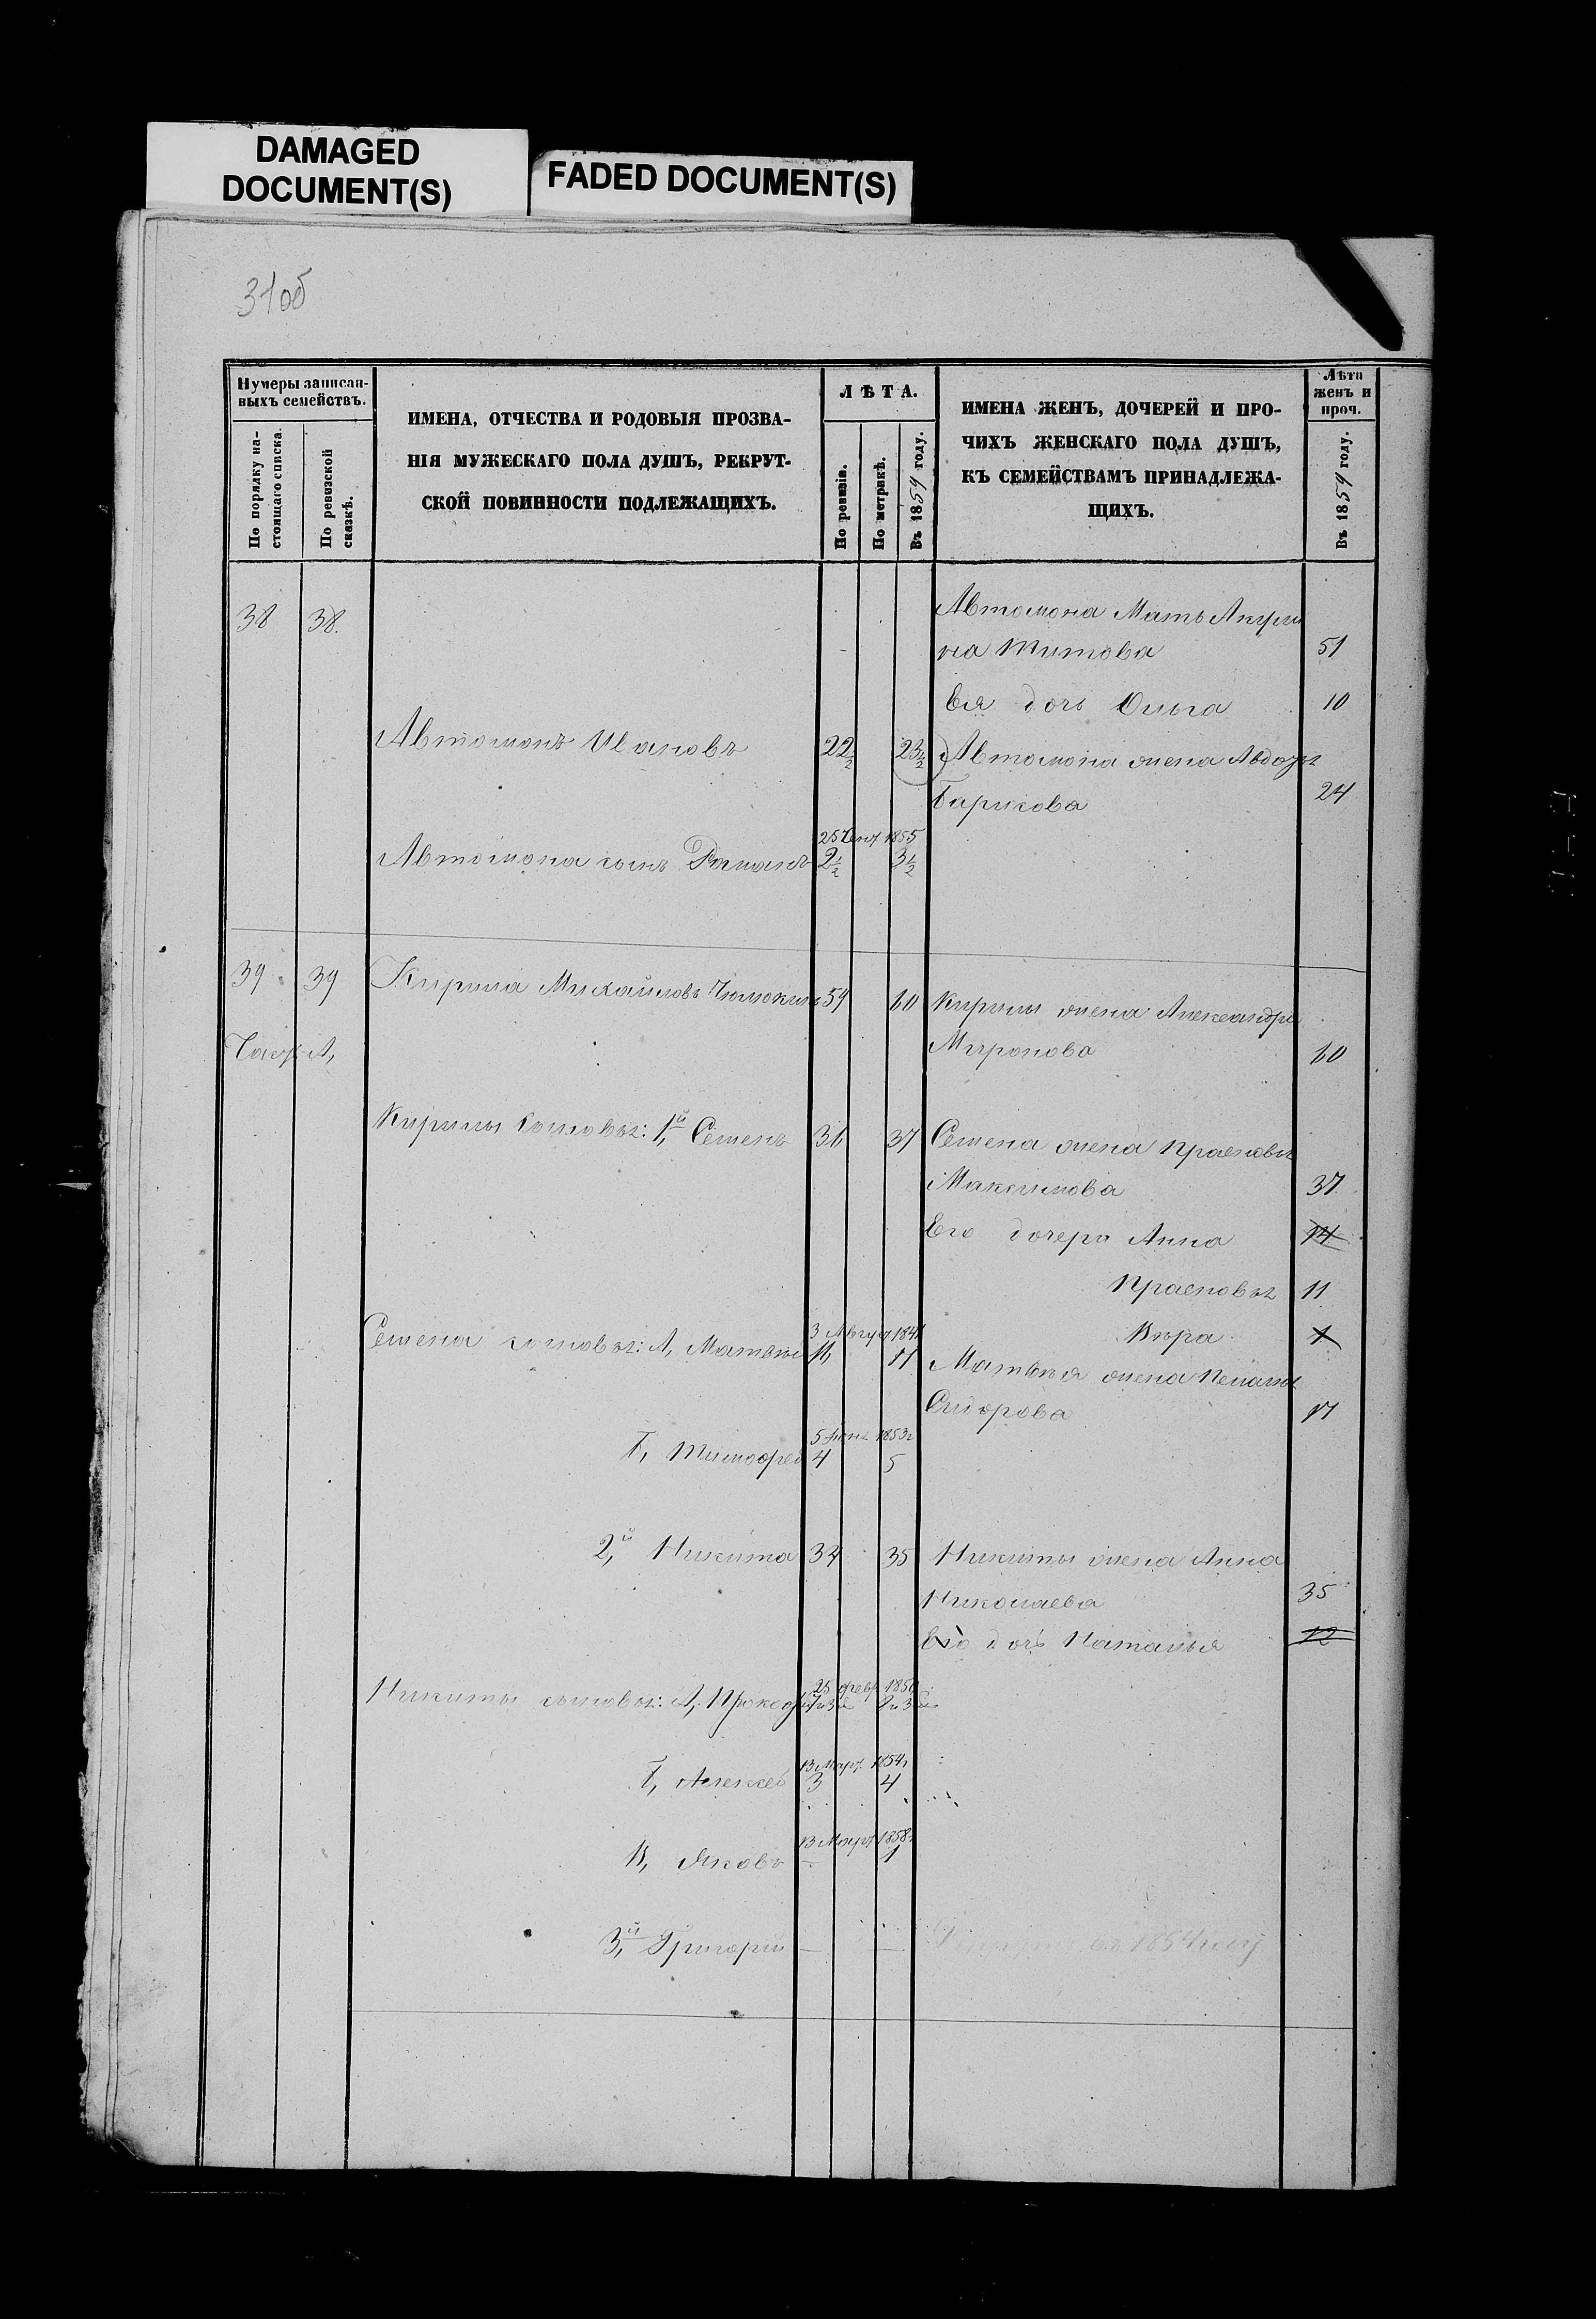 DAMAGED
DOCUMENT(S)
FADED DOCUMENT(S)
31об
Нумеры записан-
ныхъ семействъ.
По порядку на-
стоящаго списка.
По ревизской
сказкѣ.
ИМЕНА, ОТЧЕСТВА И РОДОВЫЯ ПРОЗВА-
НІЯ МУЖЕСКАГО ПОЛА ДУШЪ, РЕКРУТ-
СКОЙ ПОВИННОСТИ ПОДЛЕЖАЩИХЪ.
ЛѢТА.
По ревизіи.
По метрикѣ.
Въ 1859 году.
ИМЕНА ЖЕНЪ, ДОЧЕРЕЙ И ПРО-
ЧИХЪ ЖЕНСКАГО ПОЛА ДУШЪ,
КЪ СЕМЕЙСТВАМЪ ПРИНАДЛЕЖА-
ЩИХЪ.
Лѣта
женъ и
проч.
Въ 1859 году.
38 38. Автомона Мать Акули
на Титова 51
Ея дочь Ольга 10
Автомонъ Ивановъ 22½ 23½ Автомона жена Авдотья
Борисова 24
25 Сент 1855
Автомона сынъ Романъ 2½ 3½
39 39 Кирила Михайловъ 59 60 Кирилы жена Александра
Миронова 60
Кирилы сыновья: 1й Семенъ 36 37 Семена жена Прасковья
Максимова 37
Его дочери Анна 14
Прасковья 11
Вѣра 1
3 Август 184
Семена сыновья: А, Матвѣй 16 17 Матвѣя жена Пелагея
Сидорова 17
5 1853г
Б, Тимофей 4 5
2й Никита 34 35 Никиты жена Анна
Николаева 35
Его дочь Наталья 12
25 февр 1850
Никиты сыновья: А, Прокофій
13 Март. 1854г
Б, Алексей 3 4
13 Март 1858г
В, Яковъ - 1
3й Григорій — — 1854 году